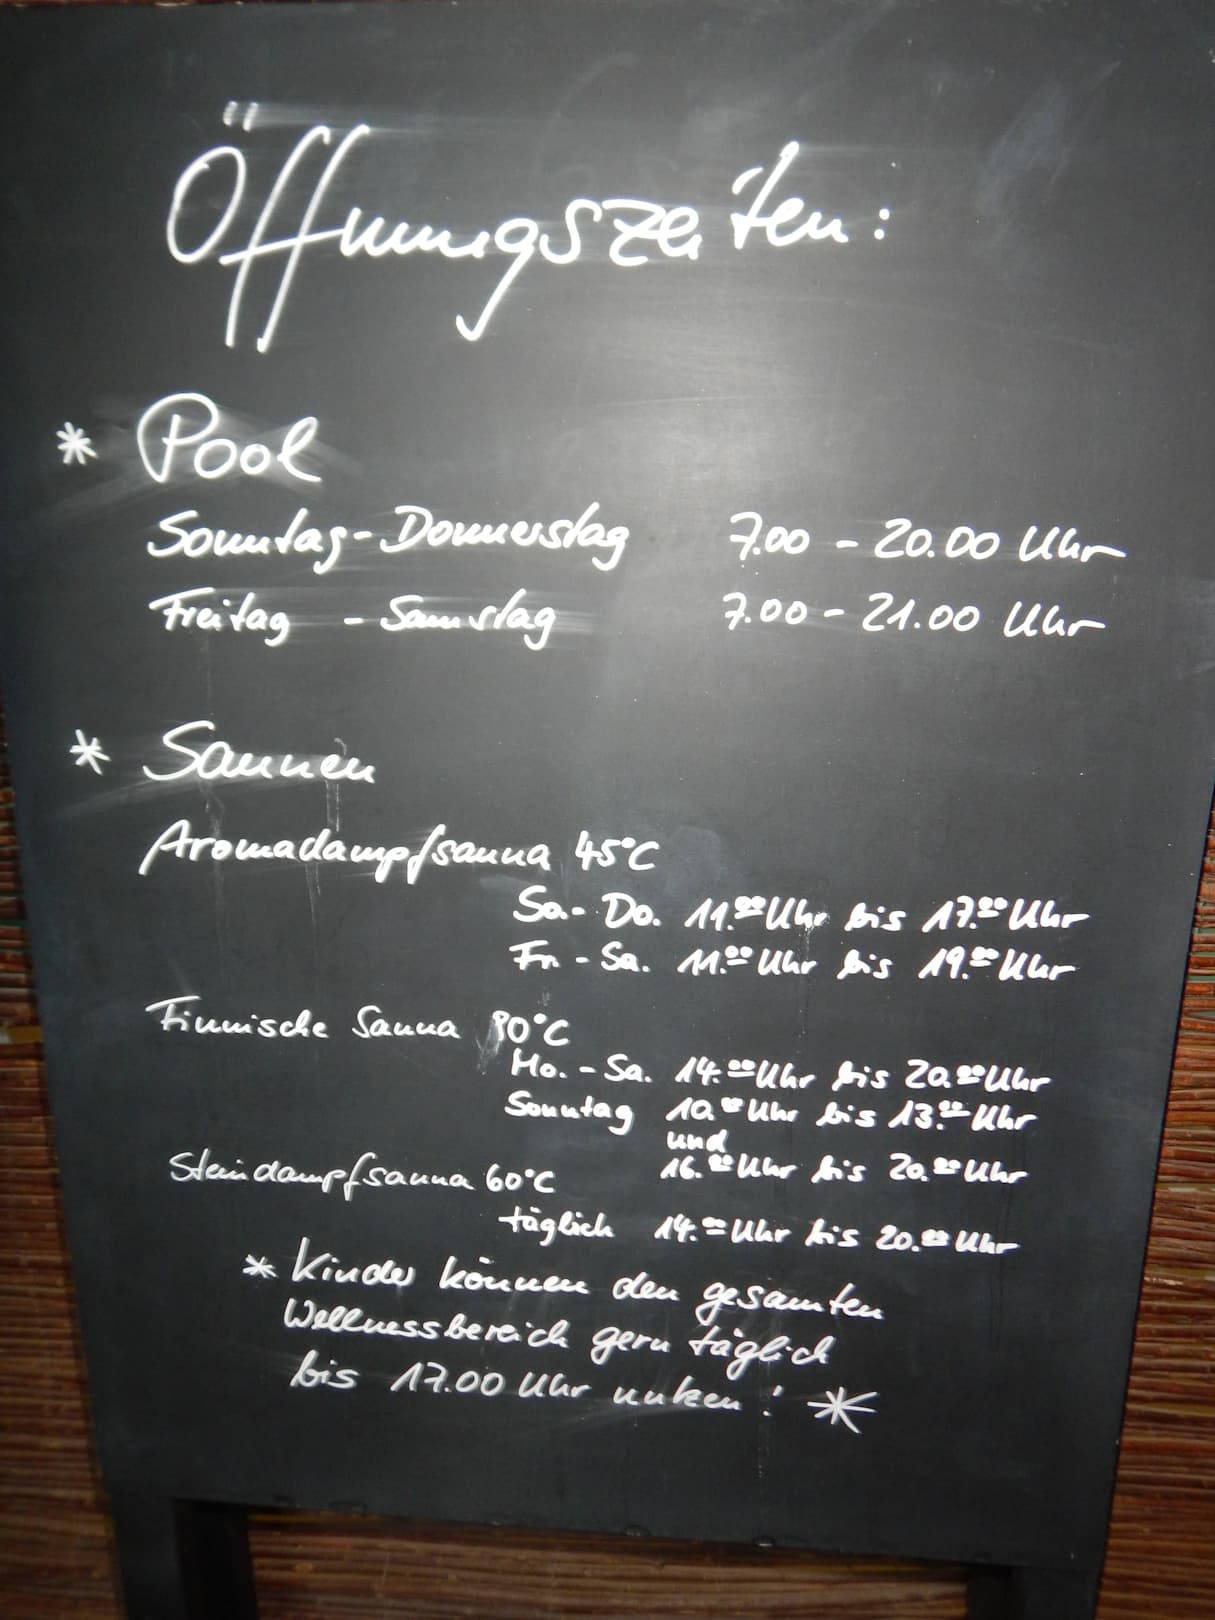 Öffnungszeiten:
* Pool
Sonntag - Donnerstag 7.00 - 20.00 Uhr
Freitag - Samstag 7.00 - 21.00 Uhr
* Saunen
Aromadampfsauna 45°C
So.- Do. 11.00 Uhr bis 17.00 Uhr
Fr. - Sa. 11.00 Uhr bis 19.00 Uhr
Finnische Sauna 90°C
Mo. - Sa. 14.00 Uhr bis 20.00 Uhr
Sonntag 10.00 Uhr bis 13.00 Uhr
und
16.00 Uhr bis 20.00 Uhr
Steindampfsauna 60°C
täglich 14.00 Uhr bis 20.00 Uhr
* Kinder können den gesamten
Wellnessbereich gern täglich
bis 17.00 Uhr nutzen! *